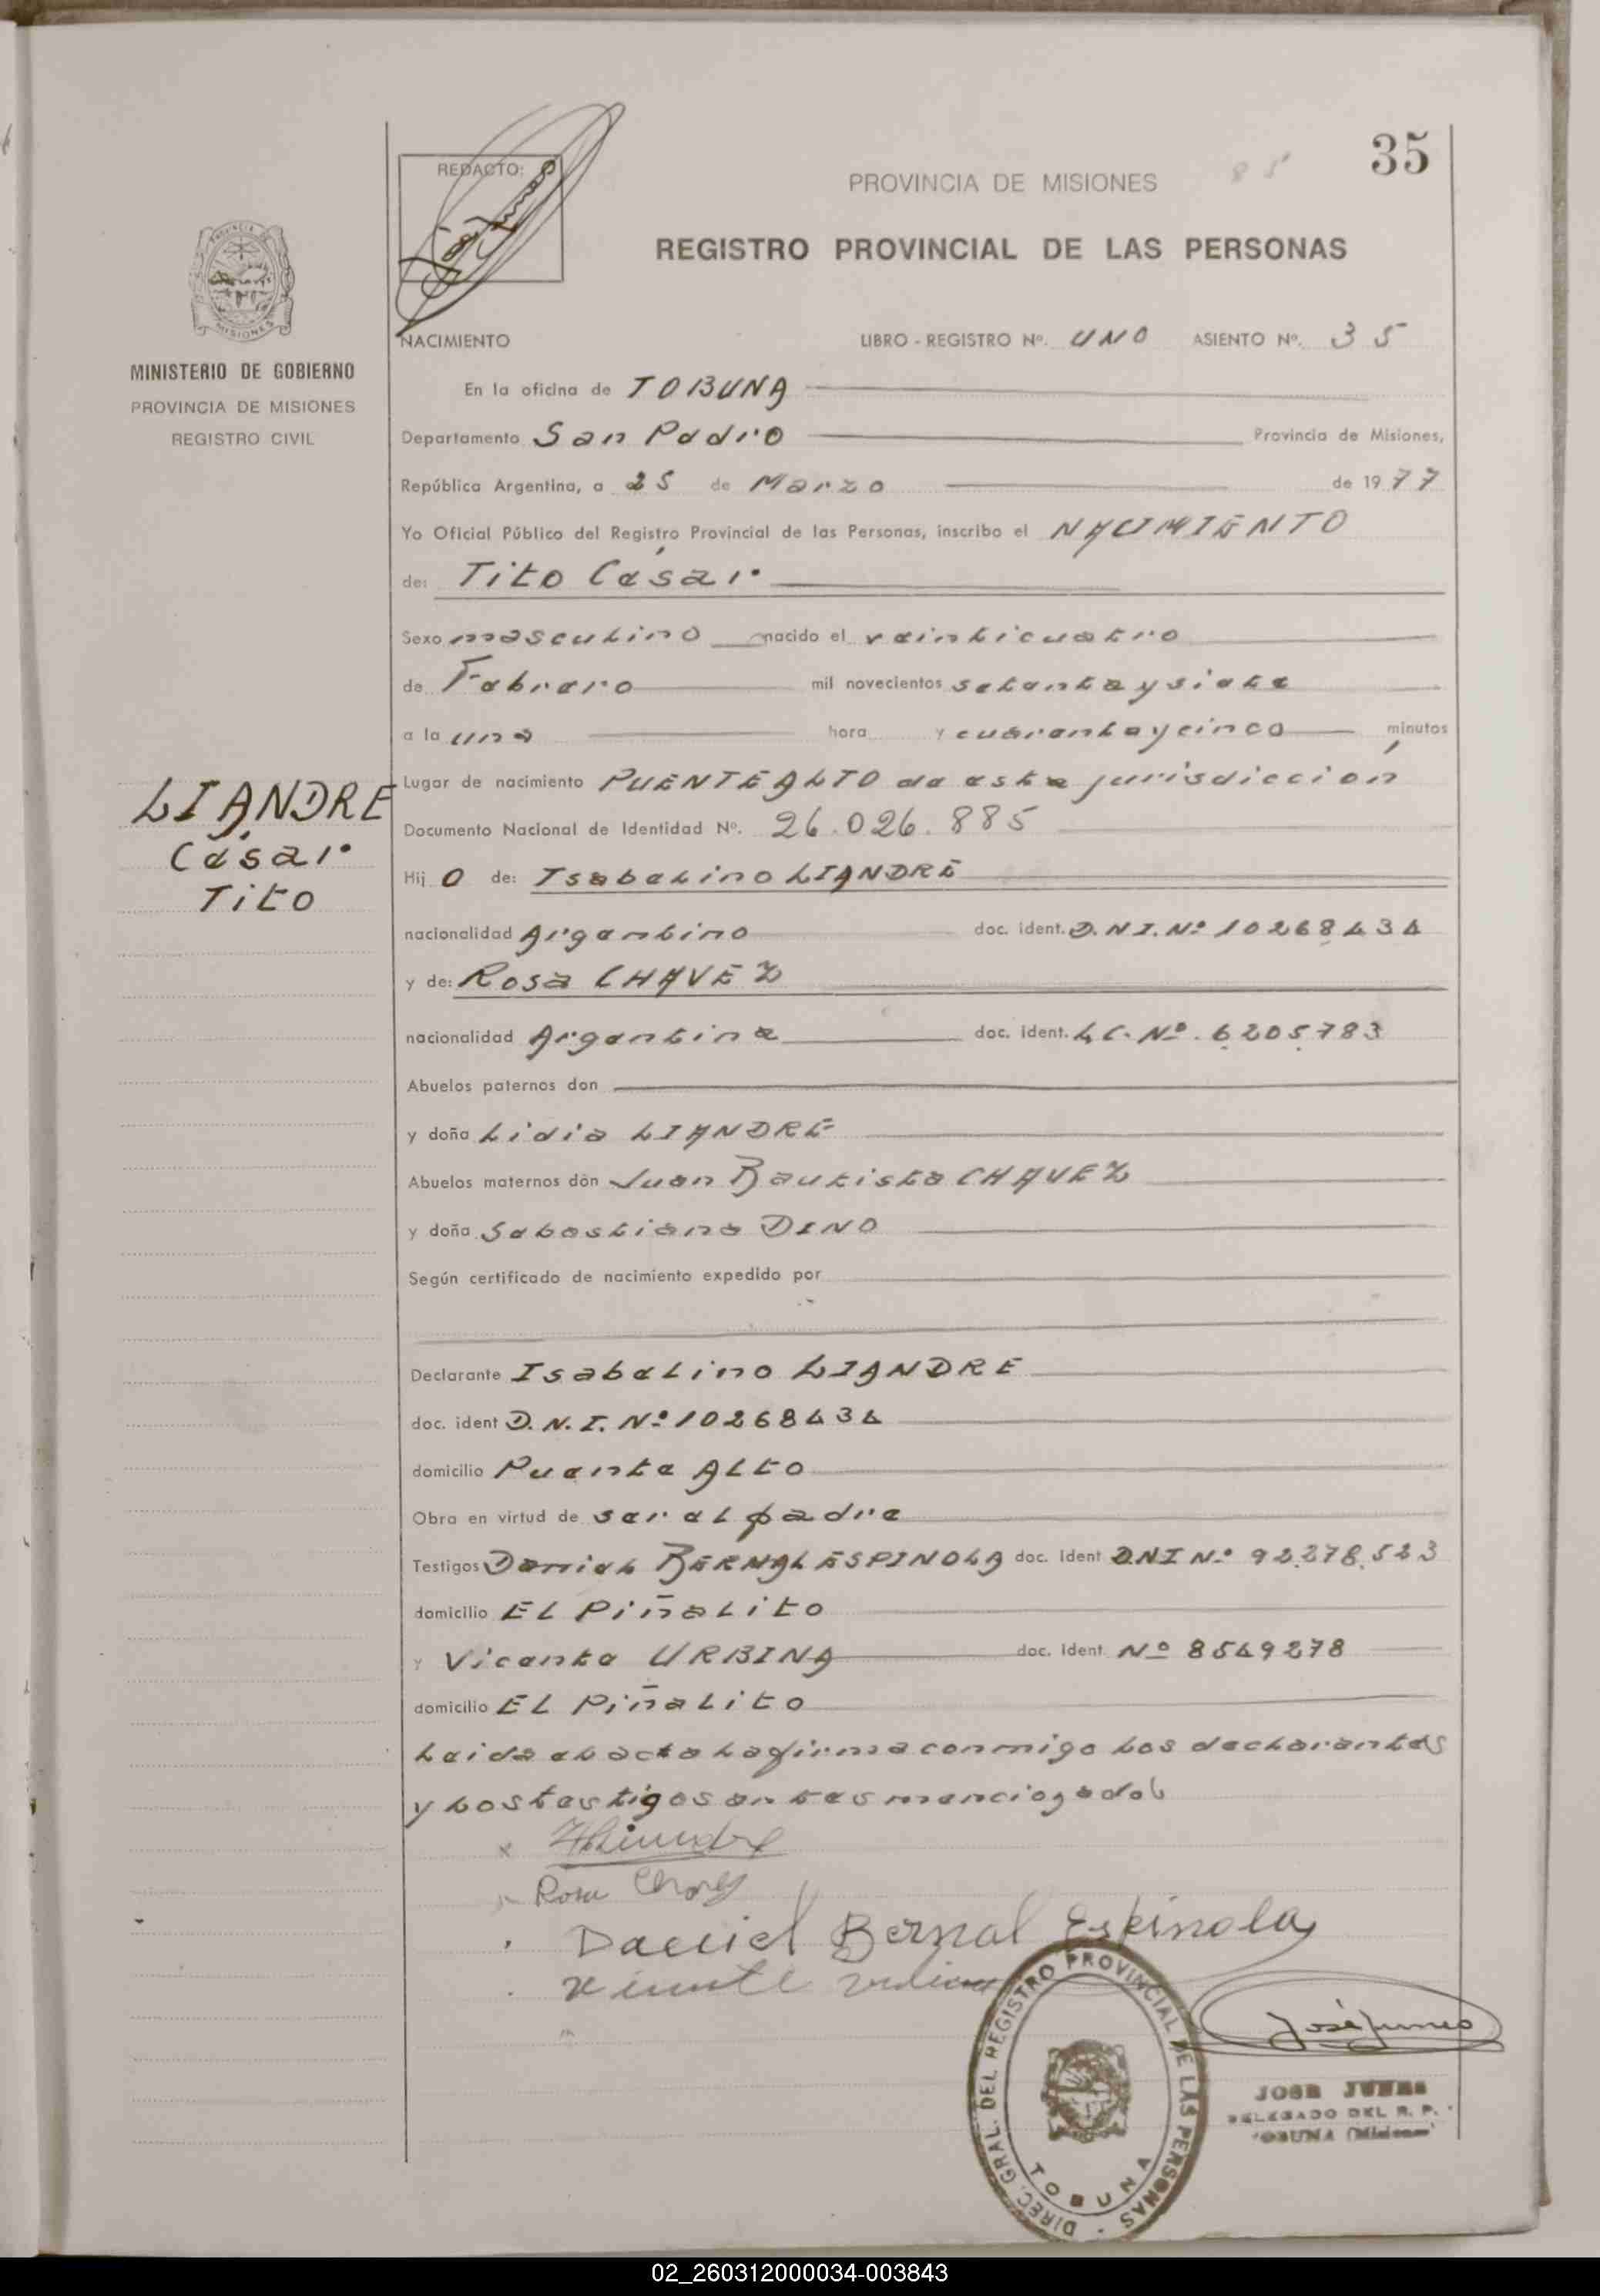 35
REDACTO:
PROVINCIA DE MISIONES
85
REGISTRO PROVINCIAL DE LAS PERSONAS
MINISTERIO DE GOBIERNO
PROVINCIA DE MISIONES
REGISTRO CIVIL
NACIMIENTO LIBRO - REGISTRO Nº. UNO ASIENTO Nº. 35
En la oficina de TOBUNA
Departamento San Pedro Provincia de Misiones,
República Argentina, a 25 de Marzo de 1977
Yo Oficial Público del Registro Provincial de las Personas, inscribo el NACIMIENTO
de: Tito César
Sexo masculino nacido el veinticuatro
de Febrero mil novecientos setenta y siete
a la una hora y cuarenta y cinco minutos
LIANDRE
César
Tito
Lugar de nacimiento PUENTE ALTO de esta jurisdicción
Documento Nacional de Identidad Nº. 26.026.885
Hij o de: Isabelino LIANDRE
nacionalidad Argentino doc. ident. D.N.I.Nº 10268434
y de: Rosa CHAVEZ
nacionalidad Argentina doc. ident. L.C. Nº. 6.205.783
Abuelos paternos don
y doña Lidia LIANDRE
Abuelos maternos don Juan Bautista CHAVEZ
y doña Sebastiana DINO
Según certificado de nacimiento expedido por
Declarante Isabelino LIANDRE
doc. ident D.N.I. Nº 10268434
domicilio Puente Alto
Obra en virtud de ser el padre
Testigos Daniel BERNAL ESPINOLA doc. Ident DNI Nº 92.278.523
domicilio El Piñalito
y Vicente URBINA doc. Ident Nº 8549278
domicilio El Piñalito
Leida el acta la firma conmigo los declarantes
y los testigos antes mencionados
Rosa Chavez
Daniel Bernal Espinola
José Junes
DIREC. GRAL. DEL REGISTRO PROVINCIAL DE LAS PERSONAS
TOBUNA
JOSE JUNES
DELEGADO DEL R. P.
TOBUNA (Misiones)
02_260312000034-003843